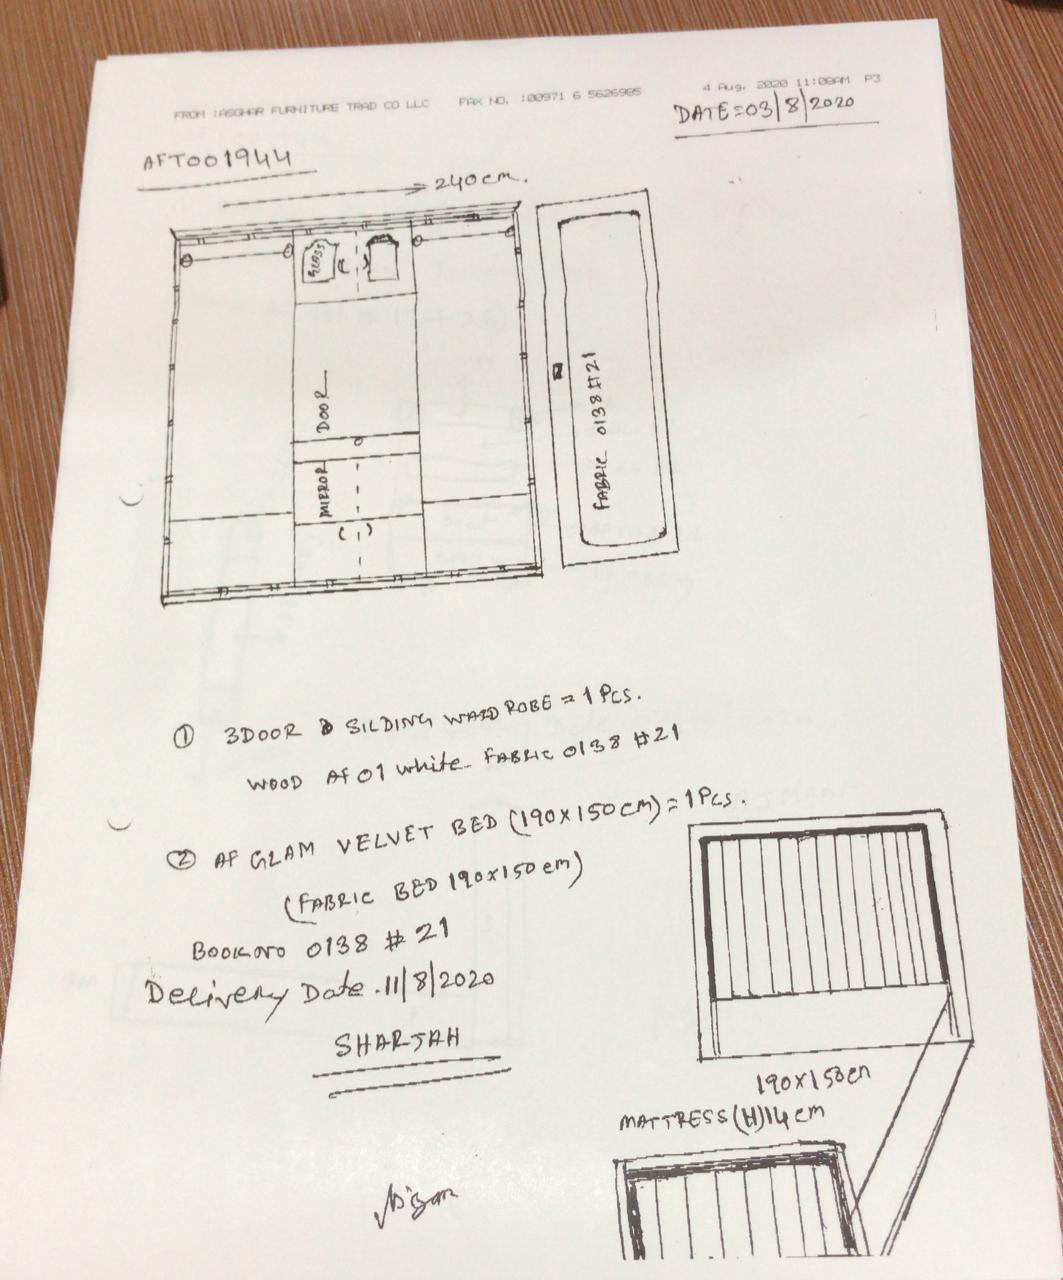 FROM :ASGHAR FURNITURE TRAD CO LLC FAX NO. :00971 6 5626985 4 Aug. 2020 11:08AM P3
DATE=03/8/2020
AFT001944
240cm.
GLASS
DOOR
MIRROR
FABRIC 0138#21
① 3DOOR SILDING WARDROBE = 1 Pcs.
WOOD AF 01 white FABRIC 0138 #21
② AF GLAM VELVET BED (190x150cm) = 1Pcs.
(FABRIC BED 190x150cm)
BOOK NO 0138 # 21
Delivery Date . 11/8/2020
SHARJAH
190x150cm
MATTRESS (H) 14cm